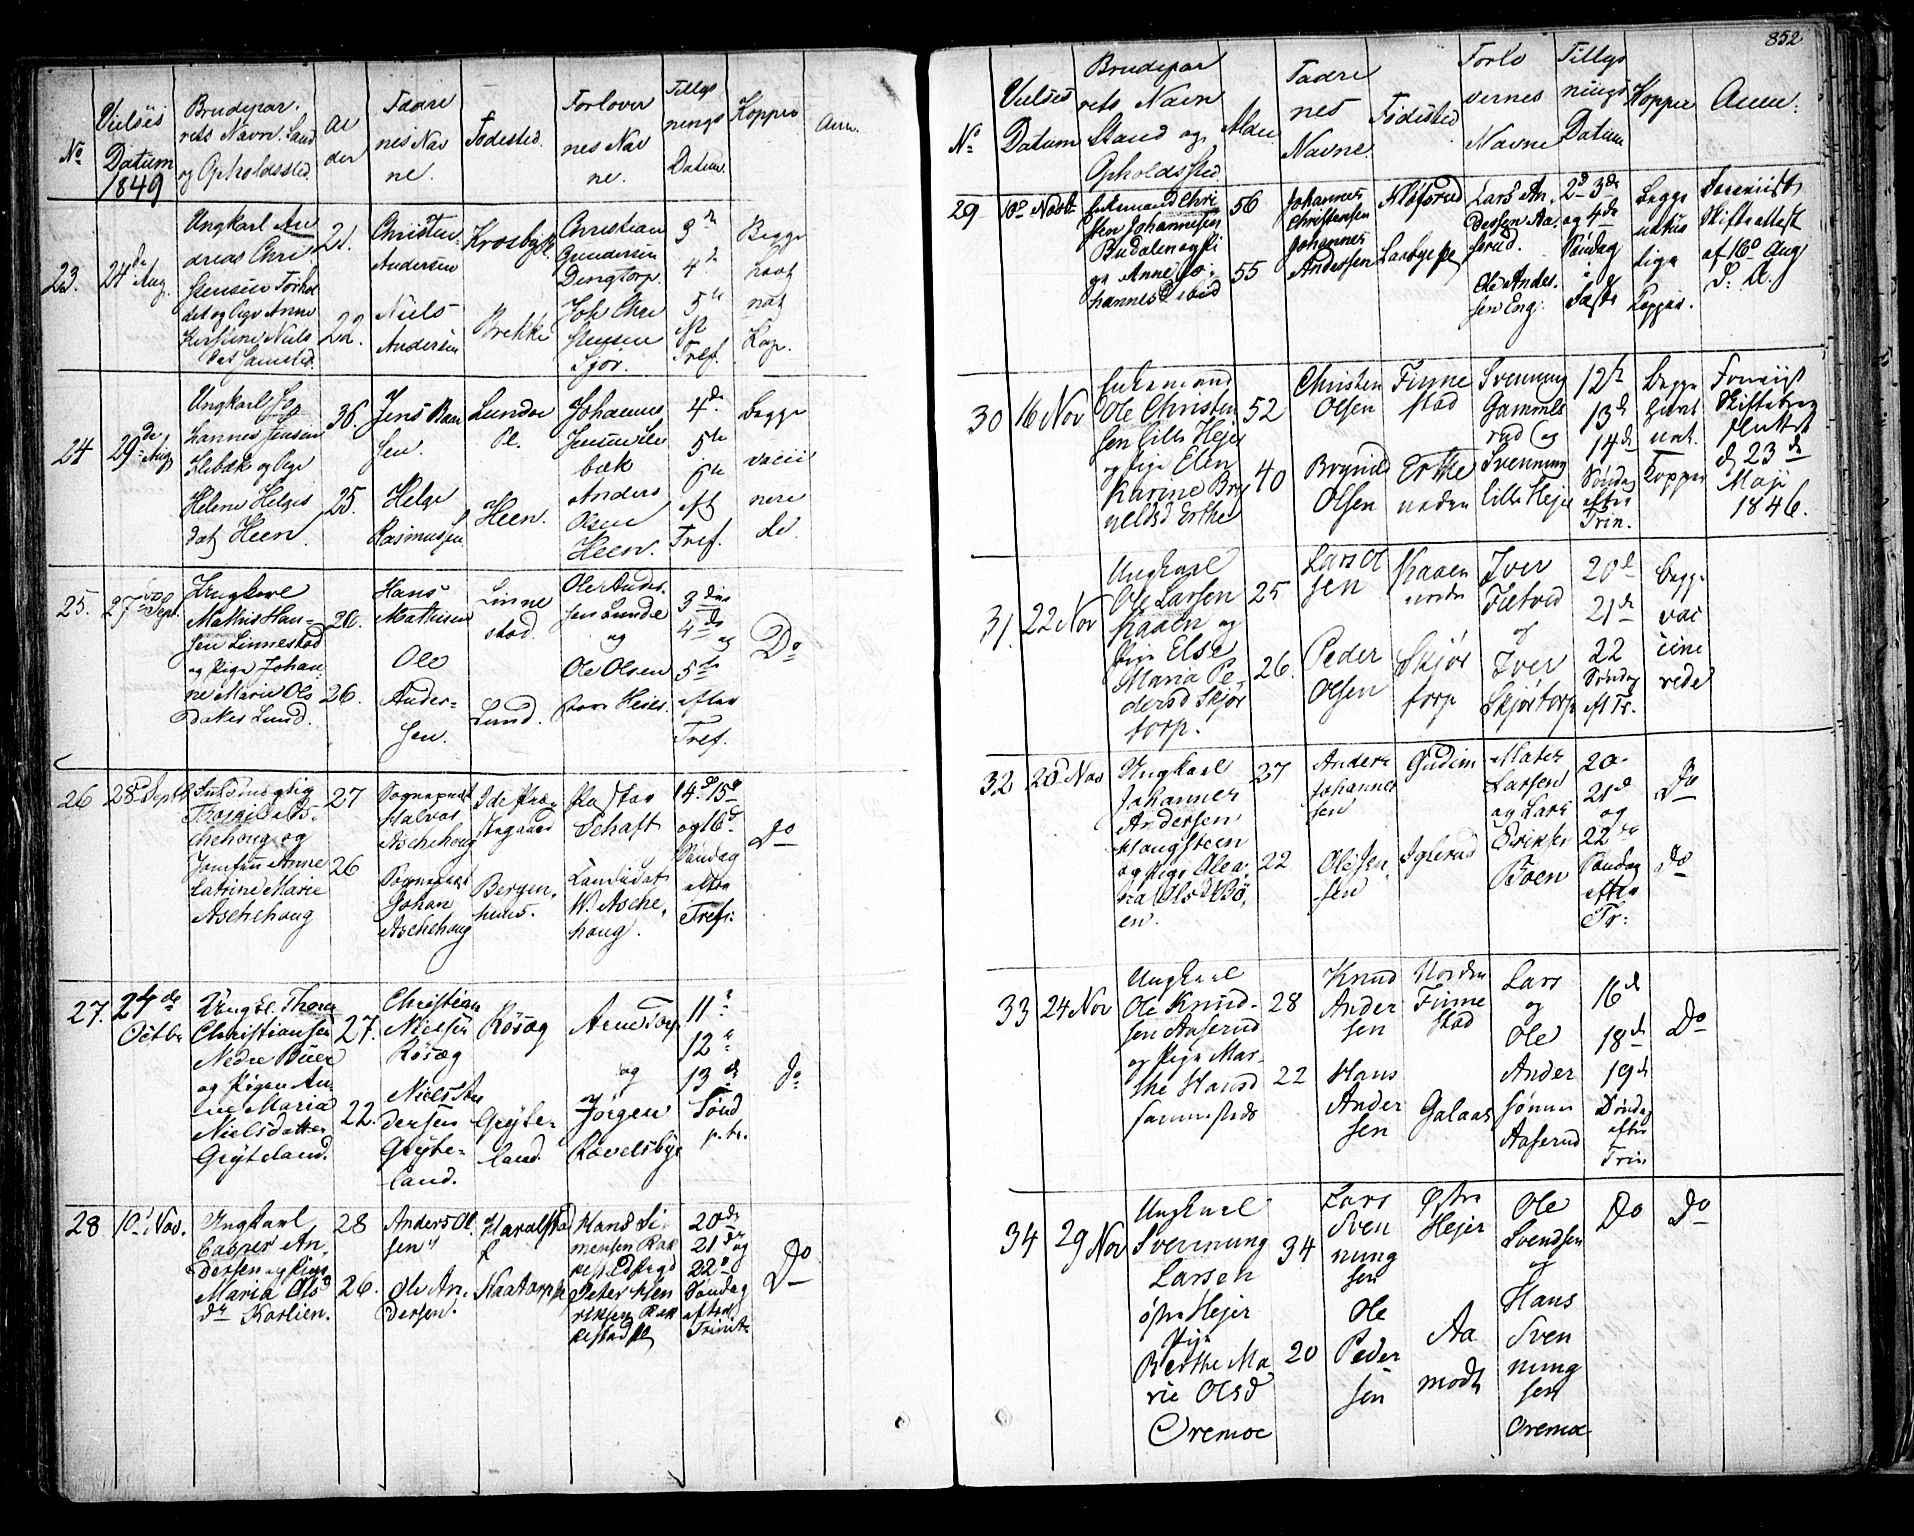 852
No
Vielses
Datum
1849
Brudepar,
rets Navn. Stand
og Opholdssted
Al
der
Fædre
nes Nav
ne.
Fødested.
Forlover
nes Nav
ne.
Tillys
nings
Datum.
Kopper
Anm.
23.
24de Aug.
Ungkarl An
dreas Chri
stensen
det og Pige Anne
Niels
21.
22.
Christen
Andersen
Niels
Andersen
Krosby
Brekke
Christian
Gundersen
Dingtorp.
Joh. Chri
stensen
3de
4de
5te
Tref.
Begge
havt
nat
Kop.
24
29de Aug
Ungkarl Jo
hannes Jensen
og Pige
Helene Helges
dat Heen.
36.
25.
Jens Han
sen.
Helge
Rasmussen
Lunde
Pl.
Heen.
Johannes
Jensen
bæk
Anders
Olsen
Heen.
4de
5te
6te
eft
Tref.
Begge
vacci
nere
de.
25.
27de Sept.
Ungkarl
Mathis Han-
sen Linnestad
og Pige Johan
ne Marie Ols
Lund.
26.
26.
Hans
Mathisen
Ole
Ander-
sen.
Linne
stad.
Lund.
Ole Ander
sen Lunde
og
Ole Olsen
3die
4de og
5te
efter
Tref.
Do
26
28d Septb
Aschehoug og
Jomfru Anne
Catrine Marie
Aschehoug
27
26
Sognepræst
Halvor
Aschehoug
Sognepræst
Johan
Aschehoug
Idd Præ-
stegaard
Bergen
huus.
Pastor
Schaft
Candidat
W. Asche,
houg.
14de 15de
og 16de
Søndag
efter
Tref.
Do
27.
24de
Octbr
Ungk. Thore
Christiansen
Nedre Buer
og Pigen An
ne Maria
Nielsdatter
Gryteland.
27.
22.
Christian
Nielsen
Røsæg
Niels An
dersen
Gryte-
land.
Røsæg
Gryte-
land.
Arne Torp
og
Jørgen
Ravelsbye
11te
12te
13de
Sønd
p. tr.
do
28
10de Nov.
Ungkarl
Casper An,
dersen og Pige
Maria Ols
dr Kaslien.
28
26.
Anders Ol
sen
Ole An,
dersen.
Haralstad
Kaatorp
Hans Si
mensen Rak
kestad
Peter Hen
riksen Rak
kestad
20de
21de og
22de
Søndag
efter
Trinit.
Do
No
Vielses
Datum
Brudepar
rets Navn
Stand og
Opholdssted
Alder
Fædre
nes
Navne
Fødested
Forlo
vernes
Navne
Tillys
nings
Datum
Kopper
Anm.
29
10de Novbr
Enkemand Chri
sten Johannesen
Budalen og Pi
ge Anne Jo-
hannesd ibid
56
55
Johannes
Christensen
Johannes
Andersen
Kløfsrud
Lars An
dersen Aa,
serud.
Ole Ander
sen Eng.
2d 3de
og 4de
Søndag
i
Faste
Begge
natur
lige
Kopper.
Foreviist
Skifteattest
af 16d Aug
30
16 Nov
Enkemand
Ole Christen
sen Lille Hejer
og Pige Elen
Karine Bry
neldsd Erthe
52
40
Christen
Olsen
Bryneld
Olsen
Finne
stad
Erthe
neden
Svenning
Gammels
rud og
Svenning
Lille Hejer
12te
13de
14de
Søndag
efter
Trin.
Begge
havt
nat.
Kopper
Foreviist
Skiftebrev
sluttet
d 23de
Maji
1846.
31.
22 Nov
Ungkarl
Ole Larsen
Kaaen og
Pige Else
Maria Pe-
dersd Skjør
torp.
25
26.
Lars Ol
sen
Peder
Olsen
Kaaen
nordre
Skjør
torp
Iver
Tietvid
og
Iver
Skjørtorp
20de
21de
22
Søndag
eft Tr.
begge
vac
cine
rede
32
20d Nov
Ungkarl
Johannes
Andersen
Haugsteen
og Pige Olea,
na Olsd Bø,
en.
27
22
Anders
Johannes
sen
Ole
sen
Gudim
Iglerud
Mates
Larsen
og Lars
Eriksen
Boen
20de
21de
og
22de
Søndag
efter
Tr:
Do
Do
33
24 Nov
Ungkarl
Ole Knud-
sen Aaserud
og Pige Mar-
the Hansd
sammesteds
28
22
Knud
Ander
sen
Hans
Ander
sen
Norden
Finne
stad
Galaas
Lars
og
Ole
Ander
sønner
Aaserud
16de
18de
19de
Søndag
efter
Trin
Do
34
29 Nov
Ungkarl
Svennung
Larsen
østre Hejer
Pige
Berthe Ma
rie Olsd
Øremoe
34
20
Lars
Sven
nung
sen
Ole
Peder
sen
Østre
Hejer
Aa
modt
Ole
Svendsen
og
Hans
Sven
nung
sen
Øremoe
Do
Do